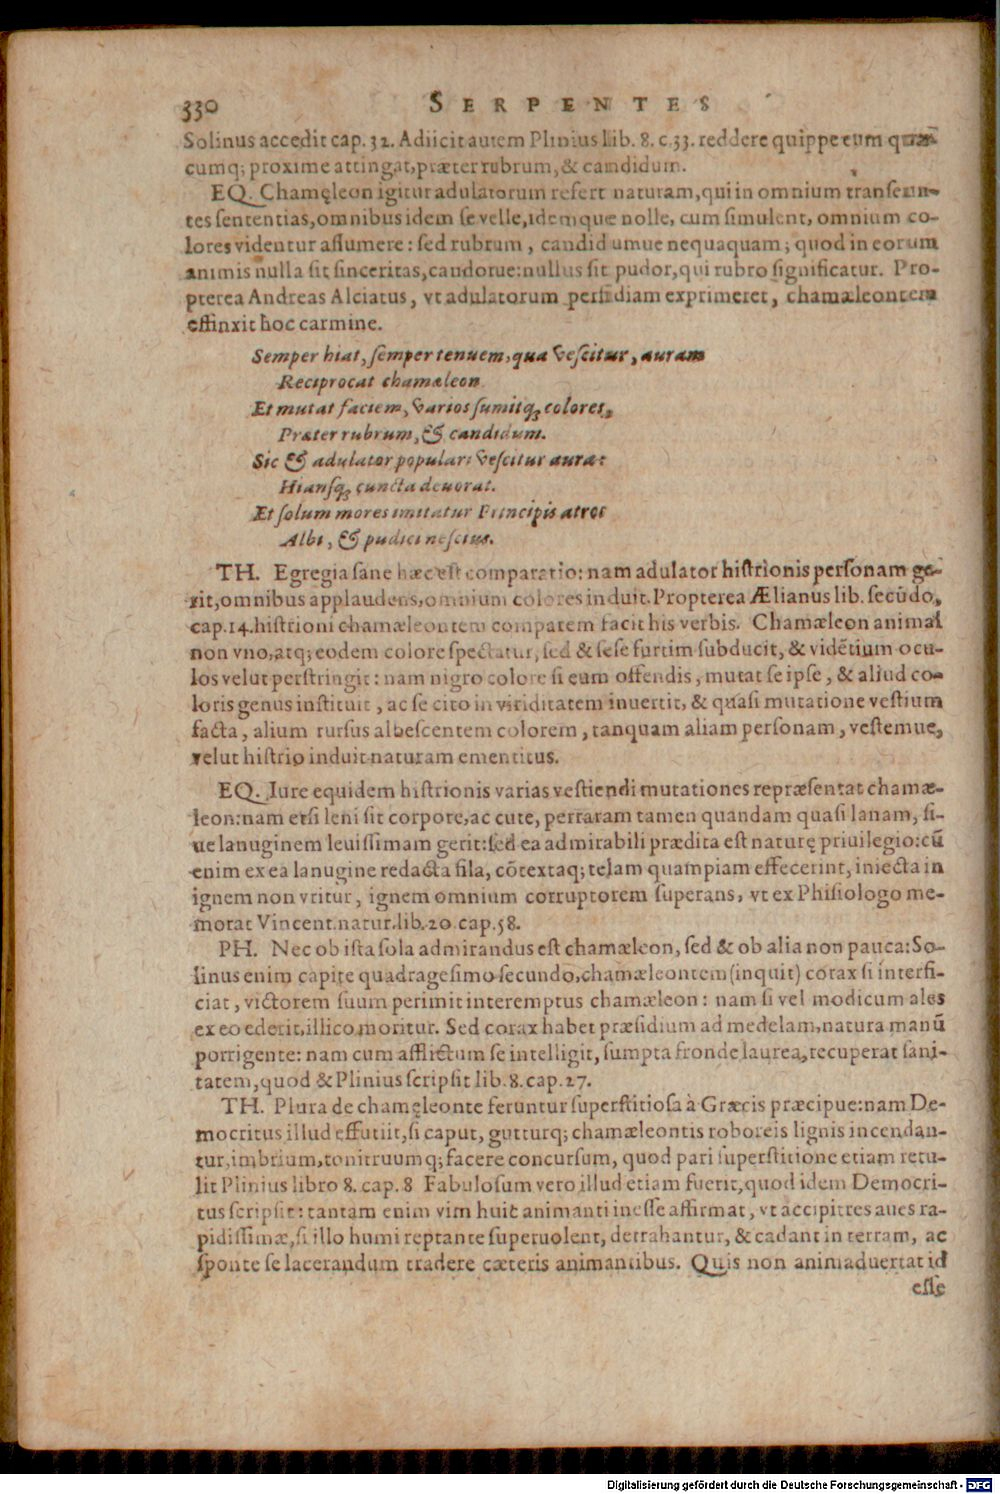 330 SERPENTES
Solinus accedit cap. 32. Adiicit autem Plinius Lib. 8. c. 33. reddere quippe eum quæ-
cumq; proxime attingat, præter rubrum, & candidum.
EQ. Chamęleon igitur adulatorum refert naturam, qui in omnium transeun-
tes sententias, omnibus idem se velle, idemque nolle, cum simulent, omnium co-
lores videntur assumere: sed rubrum, candidumue nequaquam; quod in eorum
animis nulla sit sinceritas, candorue: nullus sit pudor, qui rubro significatur. Pro-
pterea Andreas Alciatus, vt adulatorum perfidiam exprimeret, chamæleontem
effinxit hoc carmine.
Semper hiat, semper tenuem, qua vescitur, auram
Reciprocat chamæleon
Et mutat faciem, varios sumitq; colores,
Præter rubrum, & candidum.
Sic & adulator populari vescitur aura:
Hiansq; cuncta deuorat.
Et solum mores imitatur Principis atros
Albi, & pudici nescius.
TH. Egregia sane hæc est comparatio: nam adulator histrionis personam ge-
rit, omnibus applaudens, omnium colores induit. Propterea Ælianus lib. secūdo,
cap. 14. histrioni chamæleontem comparem facit his verbis. Chamæleon animal
non vno, atq; eodem colore spectatur, sed & sese furtim subducit, & vidētium ocu-
los velut perstringit: nam nigro colore si eum offendis, mutat se ipse, & aliud co-
loris genus instituit, ac se cito in viriditatem inuertit, & quasi mutatione vestium
facta, alium rursus albescentem colorem, tanquam aliam personam, vestemue,
velut histrio induit naturam ementitus.
EQ. Iure equidem histrionis varias vestiendi mutationes repræsentat chamæ-
leon: nam etsi leni sit corpore, ac cute, perraram tamen quandam quasi lanam, si-
ue lanuginem leuissimam gerit: sed ea admirabili prædita est naturę priuilegio: cū
enim ex ea lanugine redacta fila, cōtextaq; telam quampiam effecerint, iniecta in
ignem non vritur, ignem omnium corruptorem superans, vt ex Phisiologo me-
morat Vincent. natur. lib. 20 cap. 58.
PH. Nec ob ista sola admirandus est chamæleon, sed & ob alia non pauca: So-
linus enim capite quadragesimo secundo, chamæleontem (inquit) corax si interfi-
ciat, victorem suum perimit interemptus chamæleon: nam si vel modicum ales
ex eo ederit, illico moritur. Sed corax habet præsidium ad medelam, natura manū
porrigente: nam cum afflictum se intelligit, sumpta fronde laurea, recuperat sani-
tatem, quod & Plinius scripsit lib. 8. cap. 27.
TH. Plura de chamęleonte feruntur superstitiosa à Græcis præcipue: nam De-
mocritus illud effutiit, si caput, gutturq; chamæleontis roboreis lignis incendan-
tur, imbrium, tonitruumq; facere concursum, quod pari superstitione etiam retu-
lit Plinius libro 8. cap. 8 Fabulosum vero illud etiam fuerit, quod idem Democri-
tus scripsit: tantam enim vim huic animanti inesse affirmat, vt accipitres aues ra-
pidissimæ, si illo humi reptante superuolent, detrahantur, & cadant in terram, ac
sponte se lacerandum tradere cæteris animantibus. Quis non animaduertat id
esse
Digitalisierung gefördert durch die Deutsche Forschungsgemeinschaft - DFG